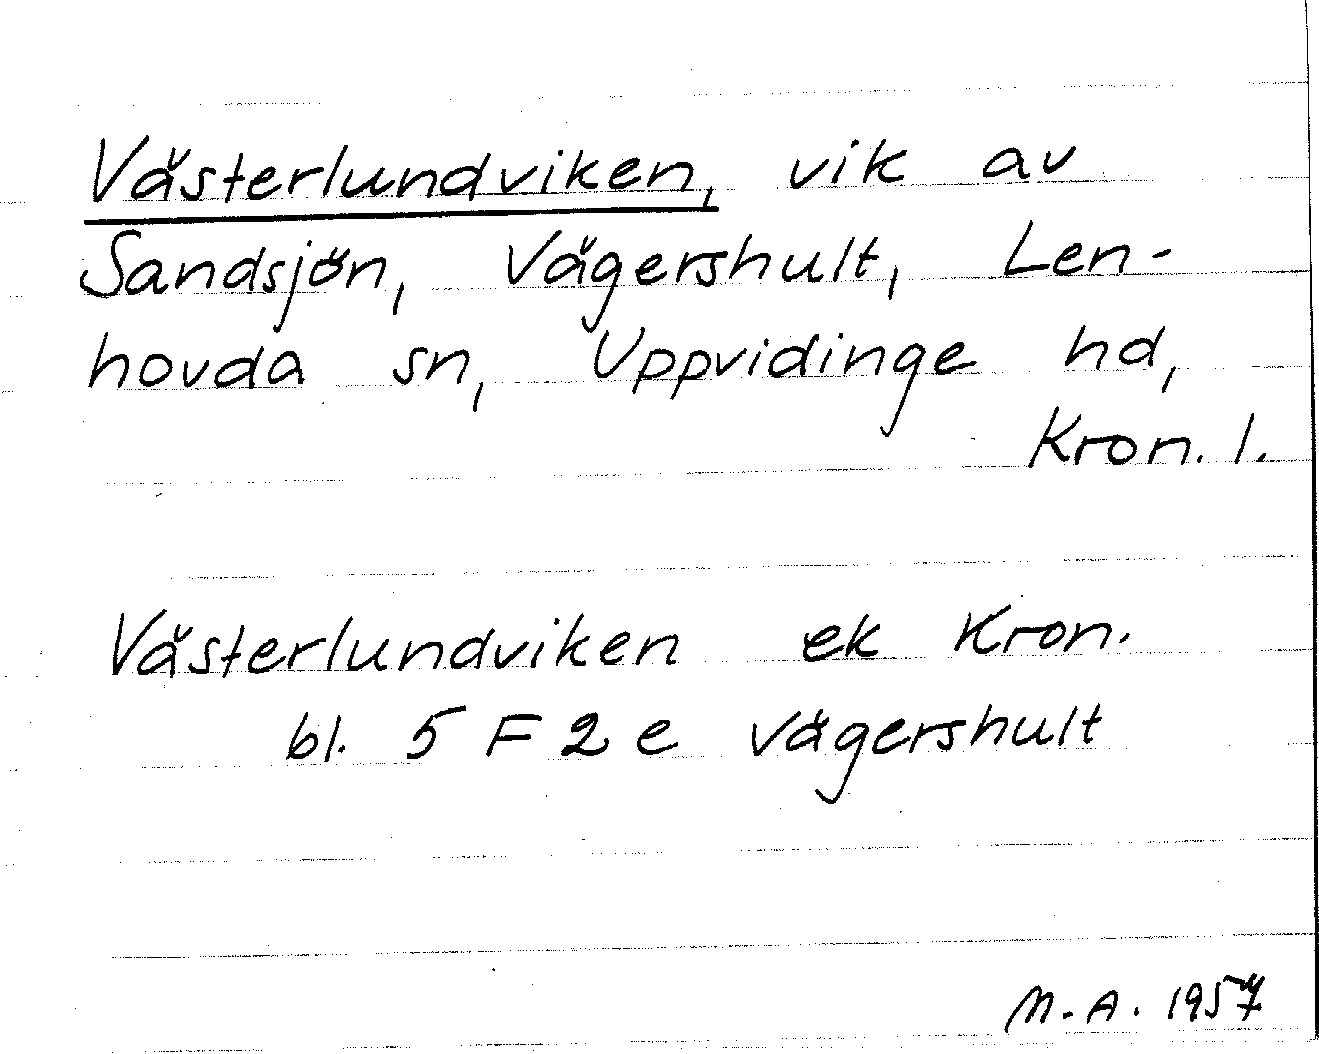 Västerlundviken, vik av
Sandsjön, Vägershult, Len-
hovda sn, Uppvidinge hd,
Kron. l.
Västerlundviken ek Kron.
bl. 5 F 2 e Vägershult
M. A. 1957